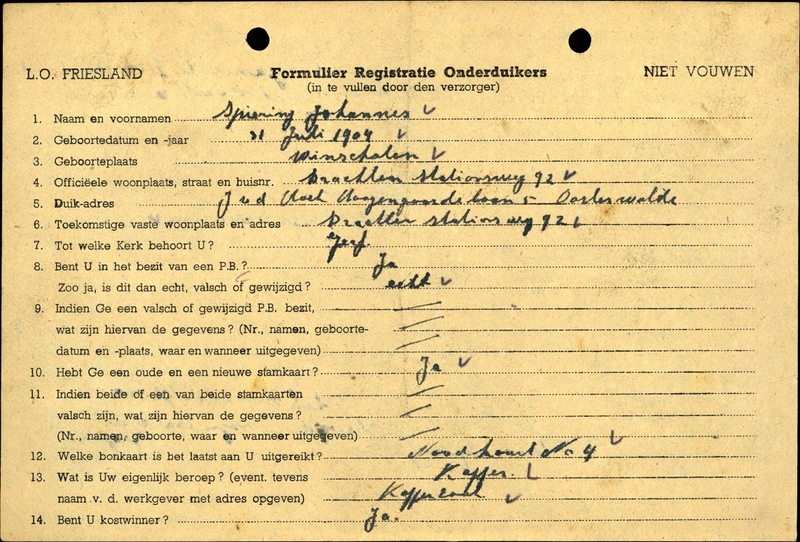 L.O. FRIESLAND Formulier Registratie Onderduikers NIET VOUWEN
(in te vullen door den verzorger)
1. Naam en voornamen Spiering Johannes
2. Geboortedatum en -jaar 31 Juli 1904
3. Geboorteplaats Winschoten
4. Officiëele woonplaats, straat en huisnr. Drachten Stationsweg 92
5. Duik-adres J v d Oosterwolde
6. Toekomstige vaste woonplaats en adres Drachten Stationsweg 92
7. Tot welke Kerk behoort U? Geref.
8. Bent U in het bezit van een P.B.? Ja
Zoo ja, is dit dan echt, valsch of gewijzigd? echt
9. Indien Ge een valsch of gewijzigd P.B. bezit,
wat zijn hiervan de gegevens? (Nr., namen, geboorte-
datum en -plaats, waar en wanneer uitgegeven)
10. Hebt Ge een oude en een nieuwe stamkaart? Ja
11. Indien beide of een van beide stamkaarten
valsch zijn, wat zijn hiervan de gegevens?
(Nr., namen, geboorte, waar en wanneer uitgegeven)
12. Welke bonkaart is het laatst aan U uitgereikt? Noodkaart No 4
13. Wat is Uw eigenlijk beroep? (event. tevens Kapper.
naam v. d. werkgever met adres opgeven)
14. Bent U kostwinner? Ja.